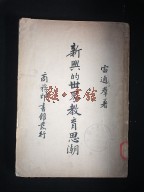 雷通群著
新興的世界教育思潮
商務印書館發行